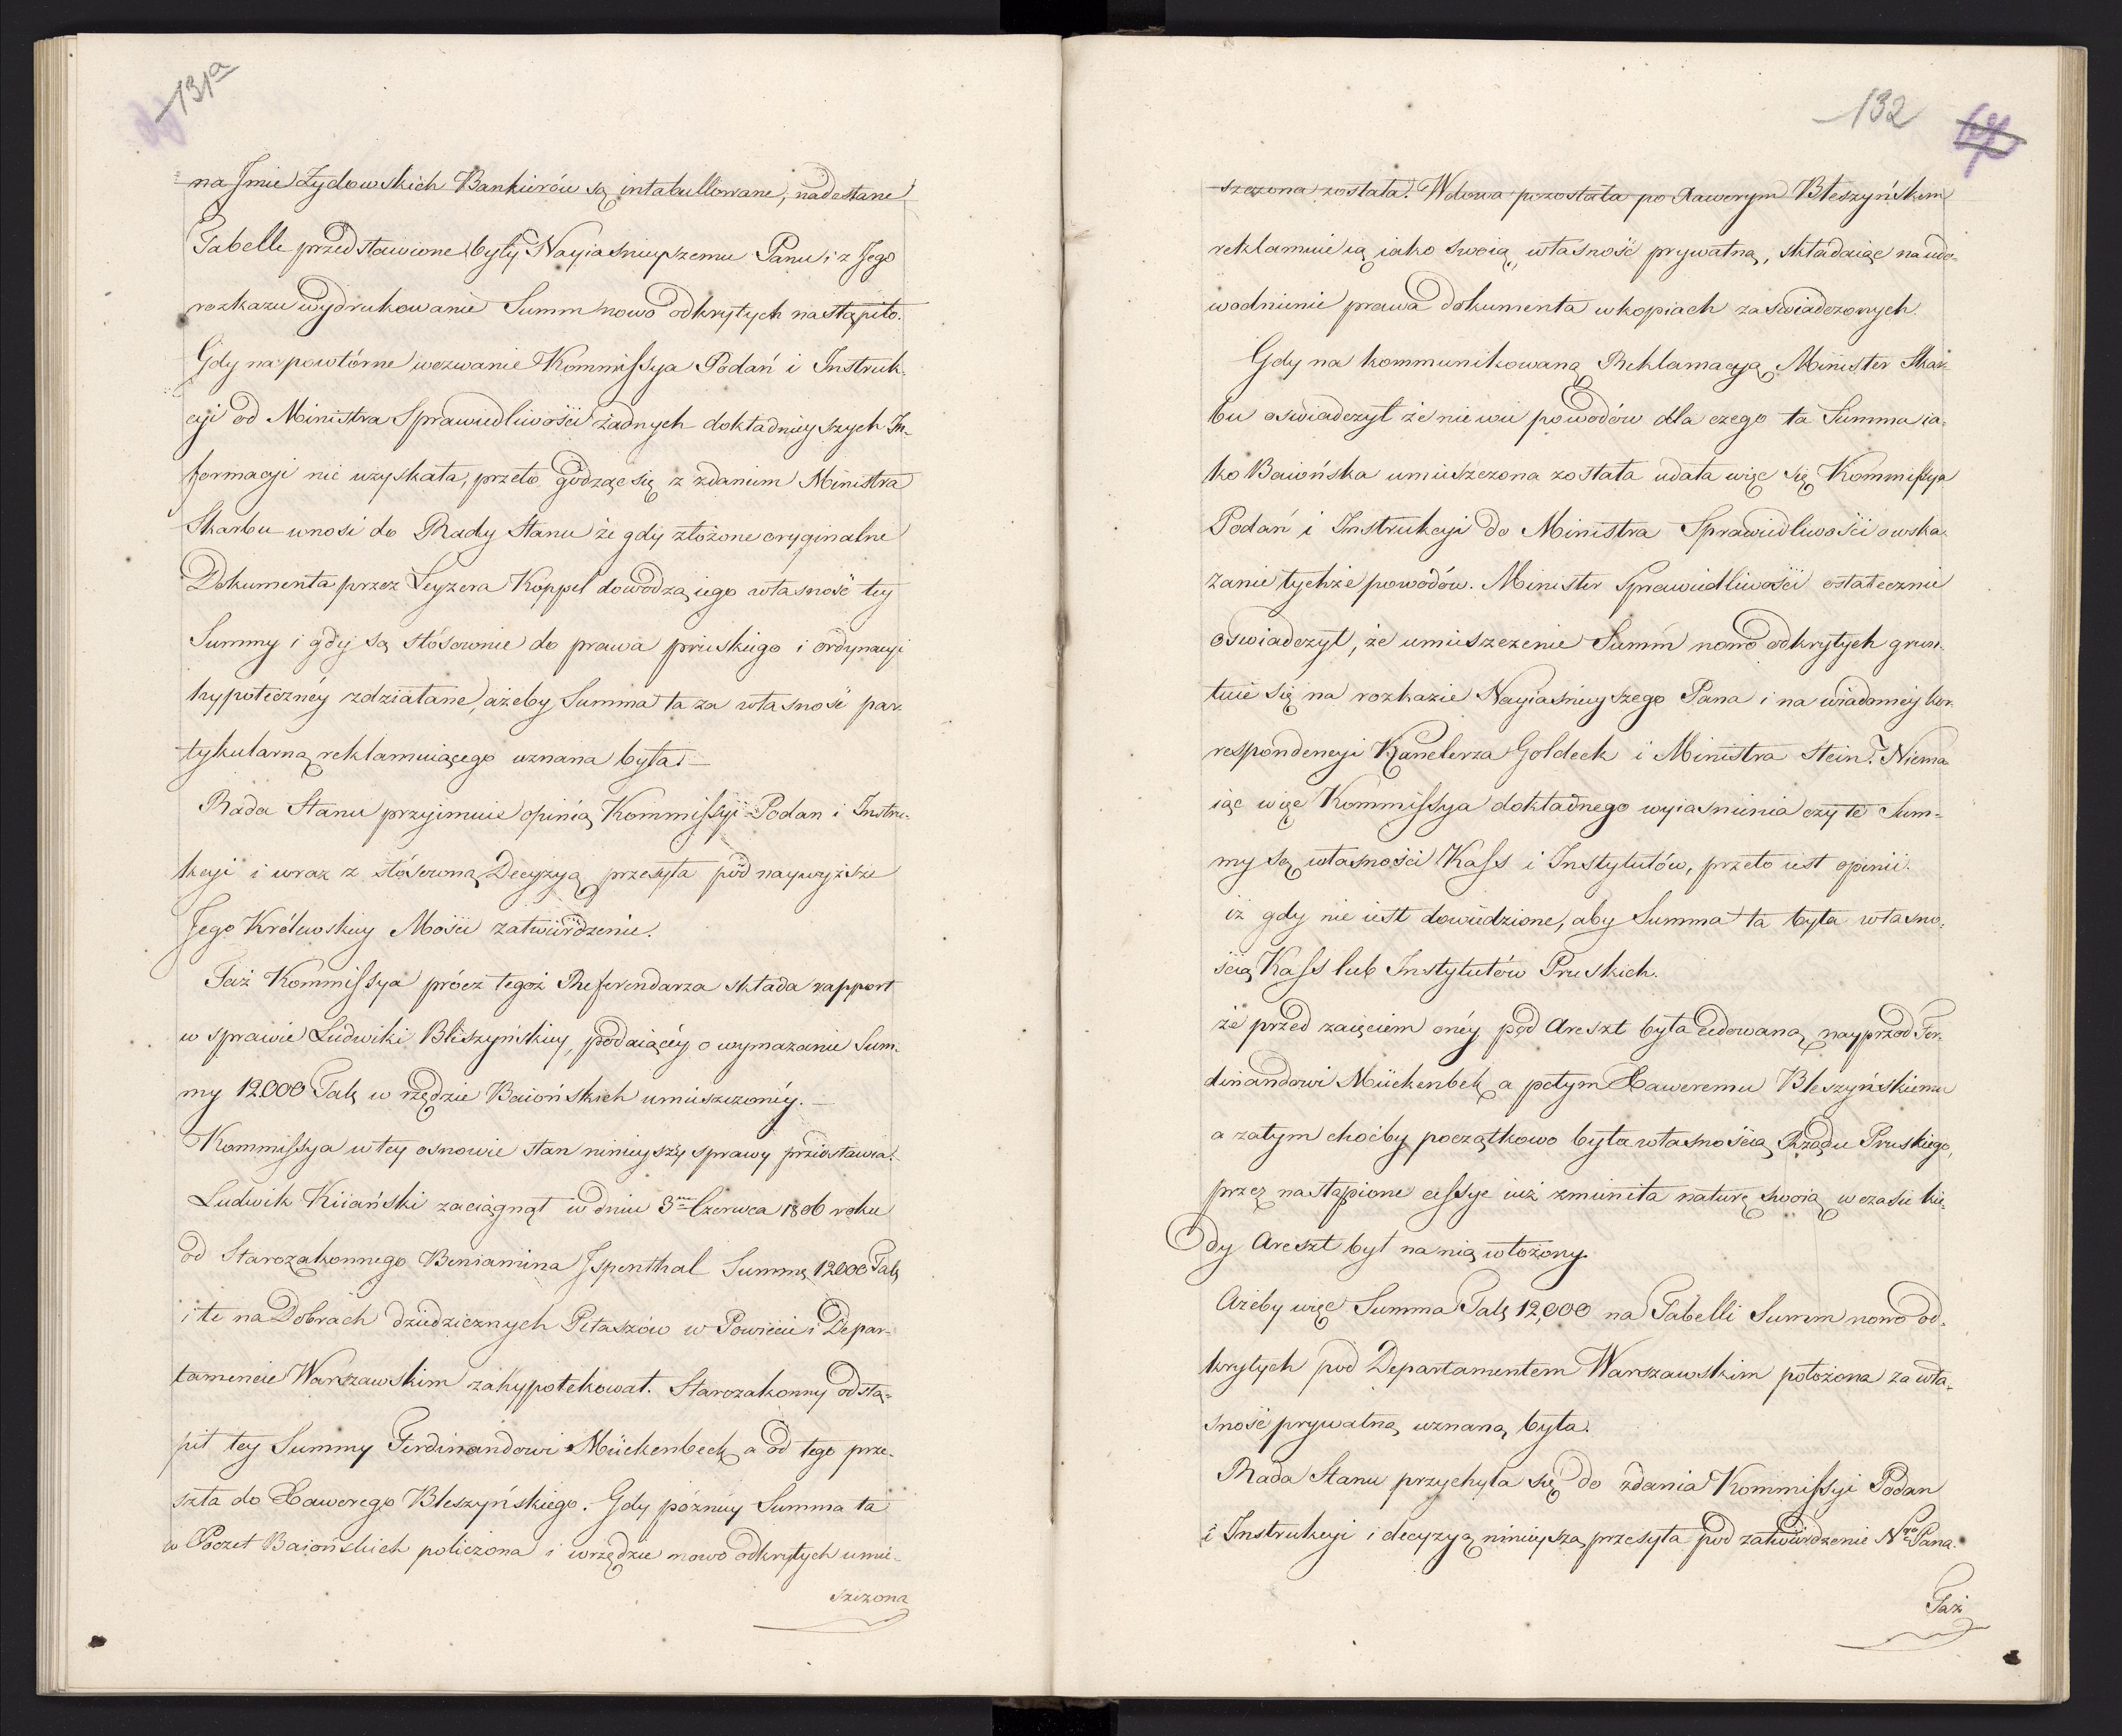 131a
na Jmie Żydowskich Bankierów są intabullowane, nadesłane
Tabelle przedstawione były Nayiaśnieyszemu Panu i z Jego
rozkazu wydrukowanie Summ nowo odkrytych nastąpiło.
Gdy na powtórne wezwanie Kommissya Podań i Instruk-
cyi od Ministra Sprawiedliwości żadnych dokładnieyszych In-
formacyi nie uzyskała, przeto godząc się z zdaniem Ministra
Skarbu wnosi do Rady Stanu że gdy złożone oryginalne
Dokumenta przez Leyzera Koppel dowodzą iego własność tey
Summy i gdy są stósownie do prawa pruskiego i ordynacyi
hypoteczney zdziałane, ażeby Summa ta za własność par-
tykularną reklamuiącego uznana była.—
Rada Stanu przyimuie opinią Kommissyi Podan i Instru-
kcyi i wraz z stósowną Decyzyą przesyła pod naywyższe
Jego Królewskiey Mości zatwierdzenie.
Taż Kommissya przez tegoż Referendarza składa rapport
w sprawie Ludwiki Błeszyńskiey, podaiącéy o wymazanie Sum-
my 12000 Tal. w rzędzie Baiońskich umieszczonéy.—
Kommissya w tey osnowie stan ninieyszy sprawy przedstawia.
Ludwik Kiiański zaciągnął w dniu 3m Czerwca 1806 roku
od Starozakonnego Beniamina Jspenthal Summę 12000 Tal.
i te na Dobrach dziedzicznych Petaszów w Powiecie i Depar-
tamencie Warszawskim zahypotekował. Starozakonny odstą-
pił tey Summy Ferdinandowi Mückenbeck a od tego prze-
szła do Xawerego Błeszyńskiego. Gdy pózniey Summa ta
w Poczet Baiońskich policzona i w rzędzie nowo odkrytych umie-
szczona
132
szczona została. Wdowa pozostała po Xawerym Błeszyńskim
reklamuie ią iako swoią własność prywatną, składaiąc na udo-
wodnienie prawa dokumenta w kopiach zaświadczonych.
Gdy na kommunikowaną Reklamacyą Minister Skar-
bu oświadczył że nie wie powodów dla czego ta Summa ia-
ko Baiońska umieszczona została udała więc się Kommissya
Podań i Instrukcyi do Ministra Sprawiedliwości o wska-
zanie tychże powodów. Minister Sprawiedliwości ostatecznie
oświadczył, że umieszczenie Summ nowo odkrytych grun-
tuie się na rozkazie Nayiaśnieyszego Pana i na wiadomey kor-
respondencyi Kanclerza Goldeck i Ministra Stein. Niema-
iąc więc Kommissya dokładnego wyiaśnienia czy te Sum-
my są własności Kass i Instytutów, przeto iest opinii.
iż gdy nie iest dowiedzione, aby Summa ta była własno-
ścią Kass lub Instytutów Pruskich.
że przed zaięciem onéy pod Areszt była cedowaną nayprzod Fer-
dinandowi Mückenbek a potym Xaweremu Błeszyńskiemu
a zatym choćby początkowo była własnością Rządu Pruskiego,
przez nastąpione cessye iuż zmieniła naturę swoią w czasie kie-
dy Areszt był na nią włożony.
Ażeby więc Summa Tal. 12,000 na Tabelli Summ nowo od-
krytych pod Departamentem Warszawskim położona za wła-
sność prywatną uznaną była.
Rada Stanu przychyla się do zdania Kommissyi Podan
i Instrukcyi i decyzyą ninieyszą przesyła pod zatwierdzenie Ngo Pana.
Taż